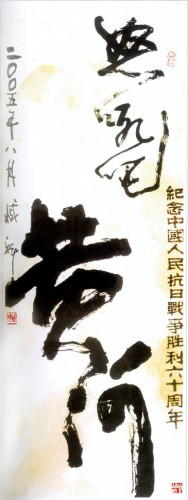 紀念中國人民抗日戰爭胜利六十周年
怒吼吧
黄河
二〇〇五年八月